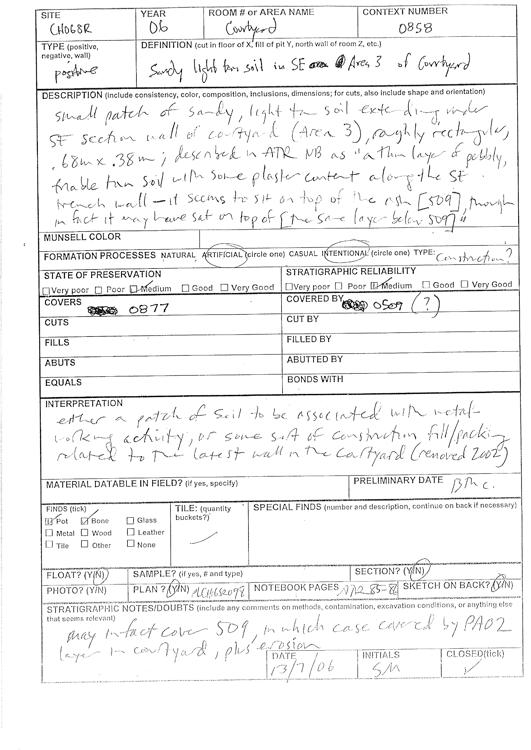 SITE YEAR ROOM # or AREA NAME CONTEXT NUMBER
CH06SR 06 Courtyard 0858
TYPE (positive, negative, wall) DEFINITION (cut in floor of X, fill of pit Y, north wall of room Z, etc.)
positive Sandy light tan soil in SE Area 3 of Courtyard
DESCRIPTION (include consistency, color, composition, inclusions, dimensions; for cuts, also include shape and orientation)
small patch of sandy, light tan soil extending under
SE section wall of courtyard (Area 3), roughly rectangular,
.68m x .38m; described in ATR NB as "a thin layer of pebbly,
friable tan soil with some plaster content along the SE
trench wall – it seems to sit on top of the ash [509], though
in fact it may have sat on top of [the same layer below 509]"
MUNSELL COLOR
FORMATION PROCESSES NATURAL ARTIFICIAL (circle one) CASUAL INTENTIONAL (circle one) TYPE: Construction?
STATE OF PRESERVATION STRATIGRAPHIC RELIABILITY
Very poor Poor Medium Good Very Good Very poor Poor Medium Good Very Good
COVERS 0877 COVERED BY 0509 (?)
CUTS CUT BY
FILLS FILLED BY
ABUTS ABUTTED BY
EQUALS BONDS WITH
INTERPRETATION
either a patch of soil to be associated with metal-
working activity, or some sort of construction fill/packing
related to the latest wall in the courtyard (removed 2002)
MATERIAL DATABLE IN FIELD? (if yes, specify) PRELIMINARY DATE 13th c.
FINDS (tick) TILE: (quantity buckets?) SPECIAL FINDS (number and description, continue on back if necessary)
Pot Bone Glass
Metal Wood Leather
Tile Other None
FLOAT? (Y/N) SAMPLE? (if yes, # and type) SECTION? (Y/N)
PHOTO? (Y/N) PLAN? (Y/N) NOTEBOOK PAGES ATR 85-86 SKETCH ON BACK? (Y/N)
STRATIGRAPHIC NOTES/DOUBTS (include any comments on methods, contamination, excavation conditions, or anything else
that seems relevant)
may in fact cover 509, in which case covered by PA02
layer in courtyard, plus erosion
DATE INITIALS CLOSED(tick)
13/7/06 SM